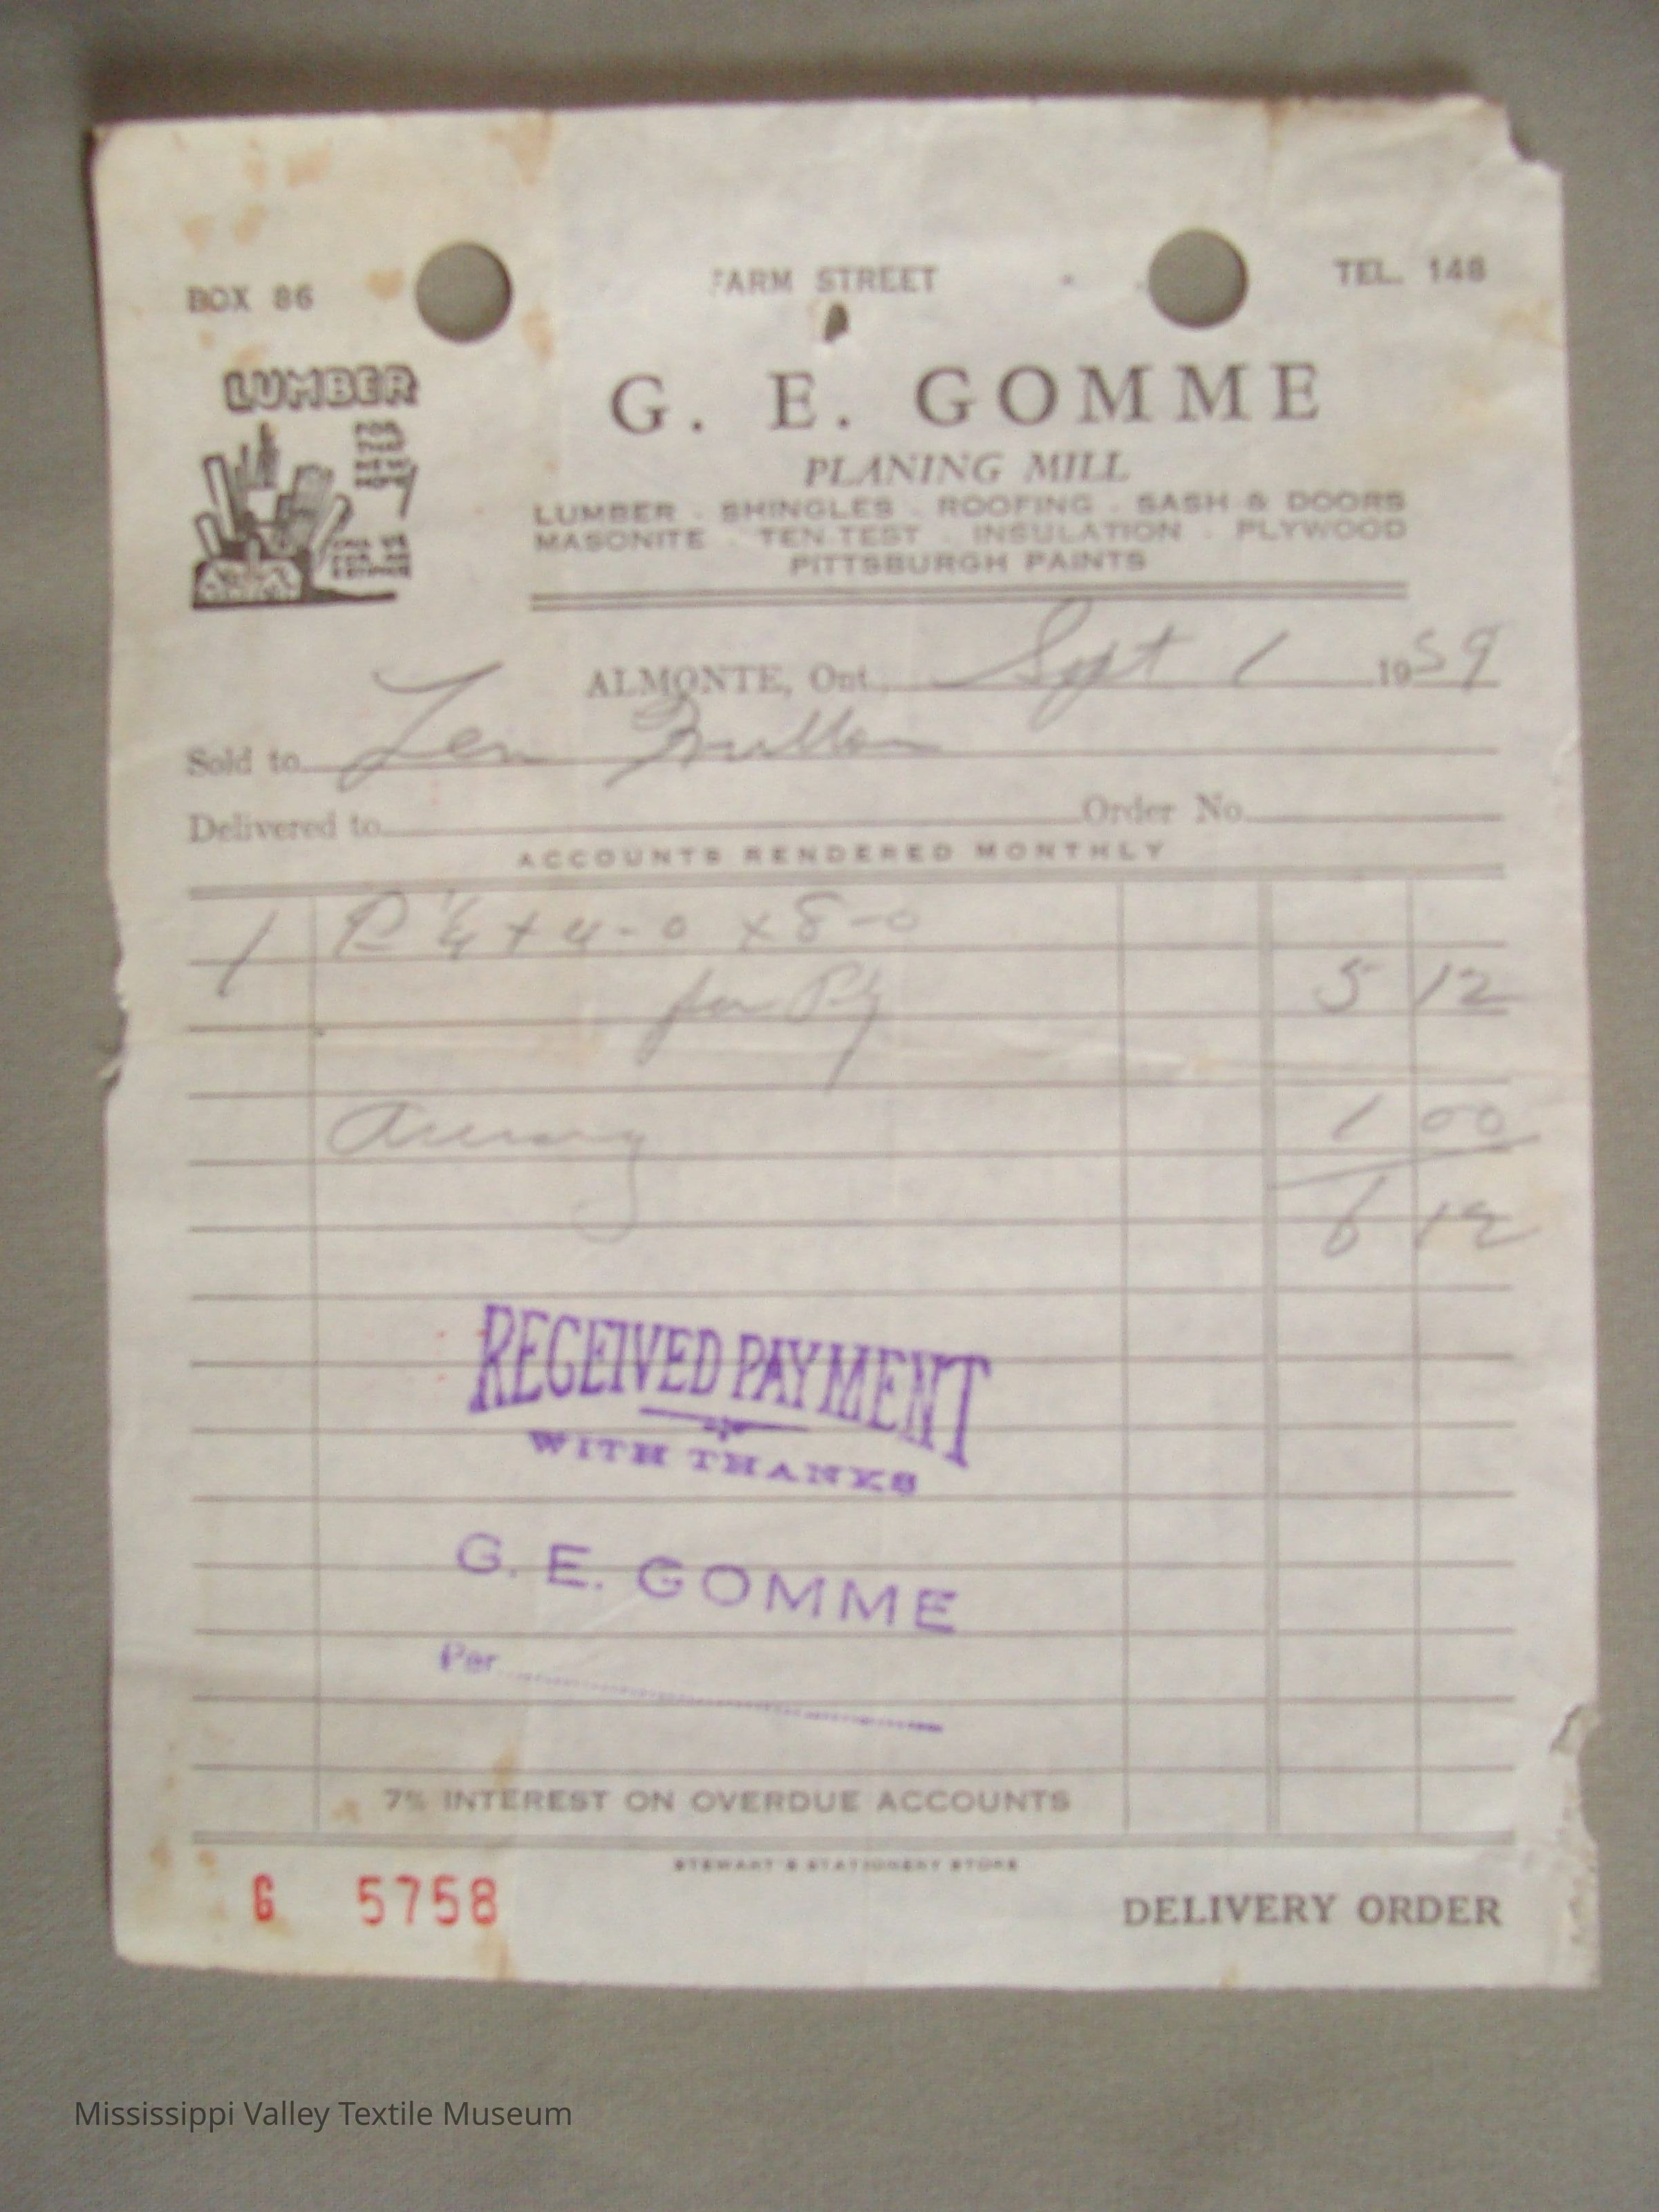 BOX 86 FARM STREET TEL. 148
LUMBER
FOR THAT NEW HOME
G. E. GOMME
PLANING MILL
LUMBER - SHINGLES - ROOFING - SASH & DOORS
MASONITE - TEN TEST - INSULATION - PLYWOOD
PITTSBURGH PAINTS
ALMONTE, Ont., Sept 1 1959
Sold to Len
Delivered to Order No.
ACCOUNTS RENDERED MONTHLY
1 1/4 x 4-0 x 8-0
fir Ply 5 12
1 00
6 12
RECEIVED PAYMENT
WITH THANKS
G. E. GOMME
Per
7% INTEREST ON OVERDUE ACCOUNTS
STEWART'S STATIONERY STORE
G 5758 DELIVERY ORDER
Mississippi Valley Textile Museum